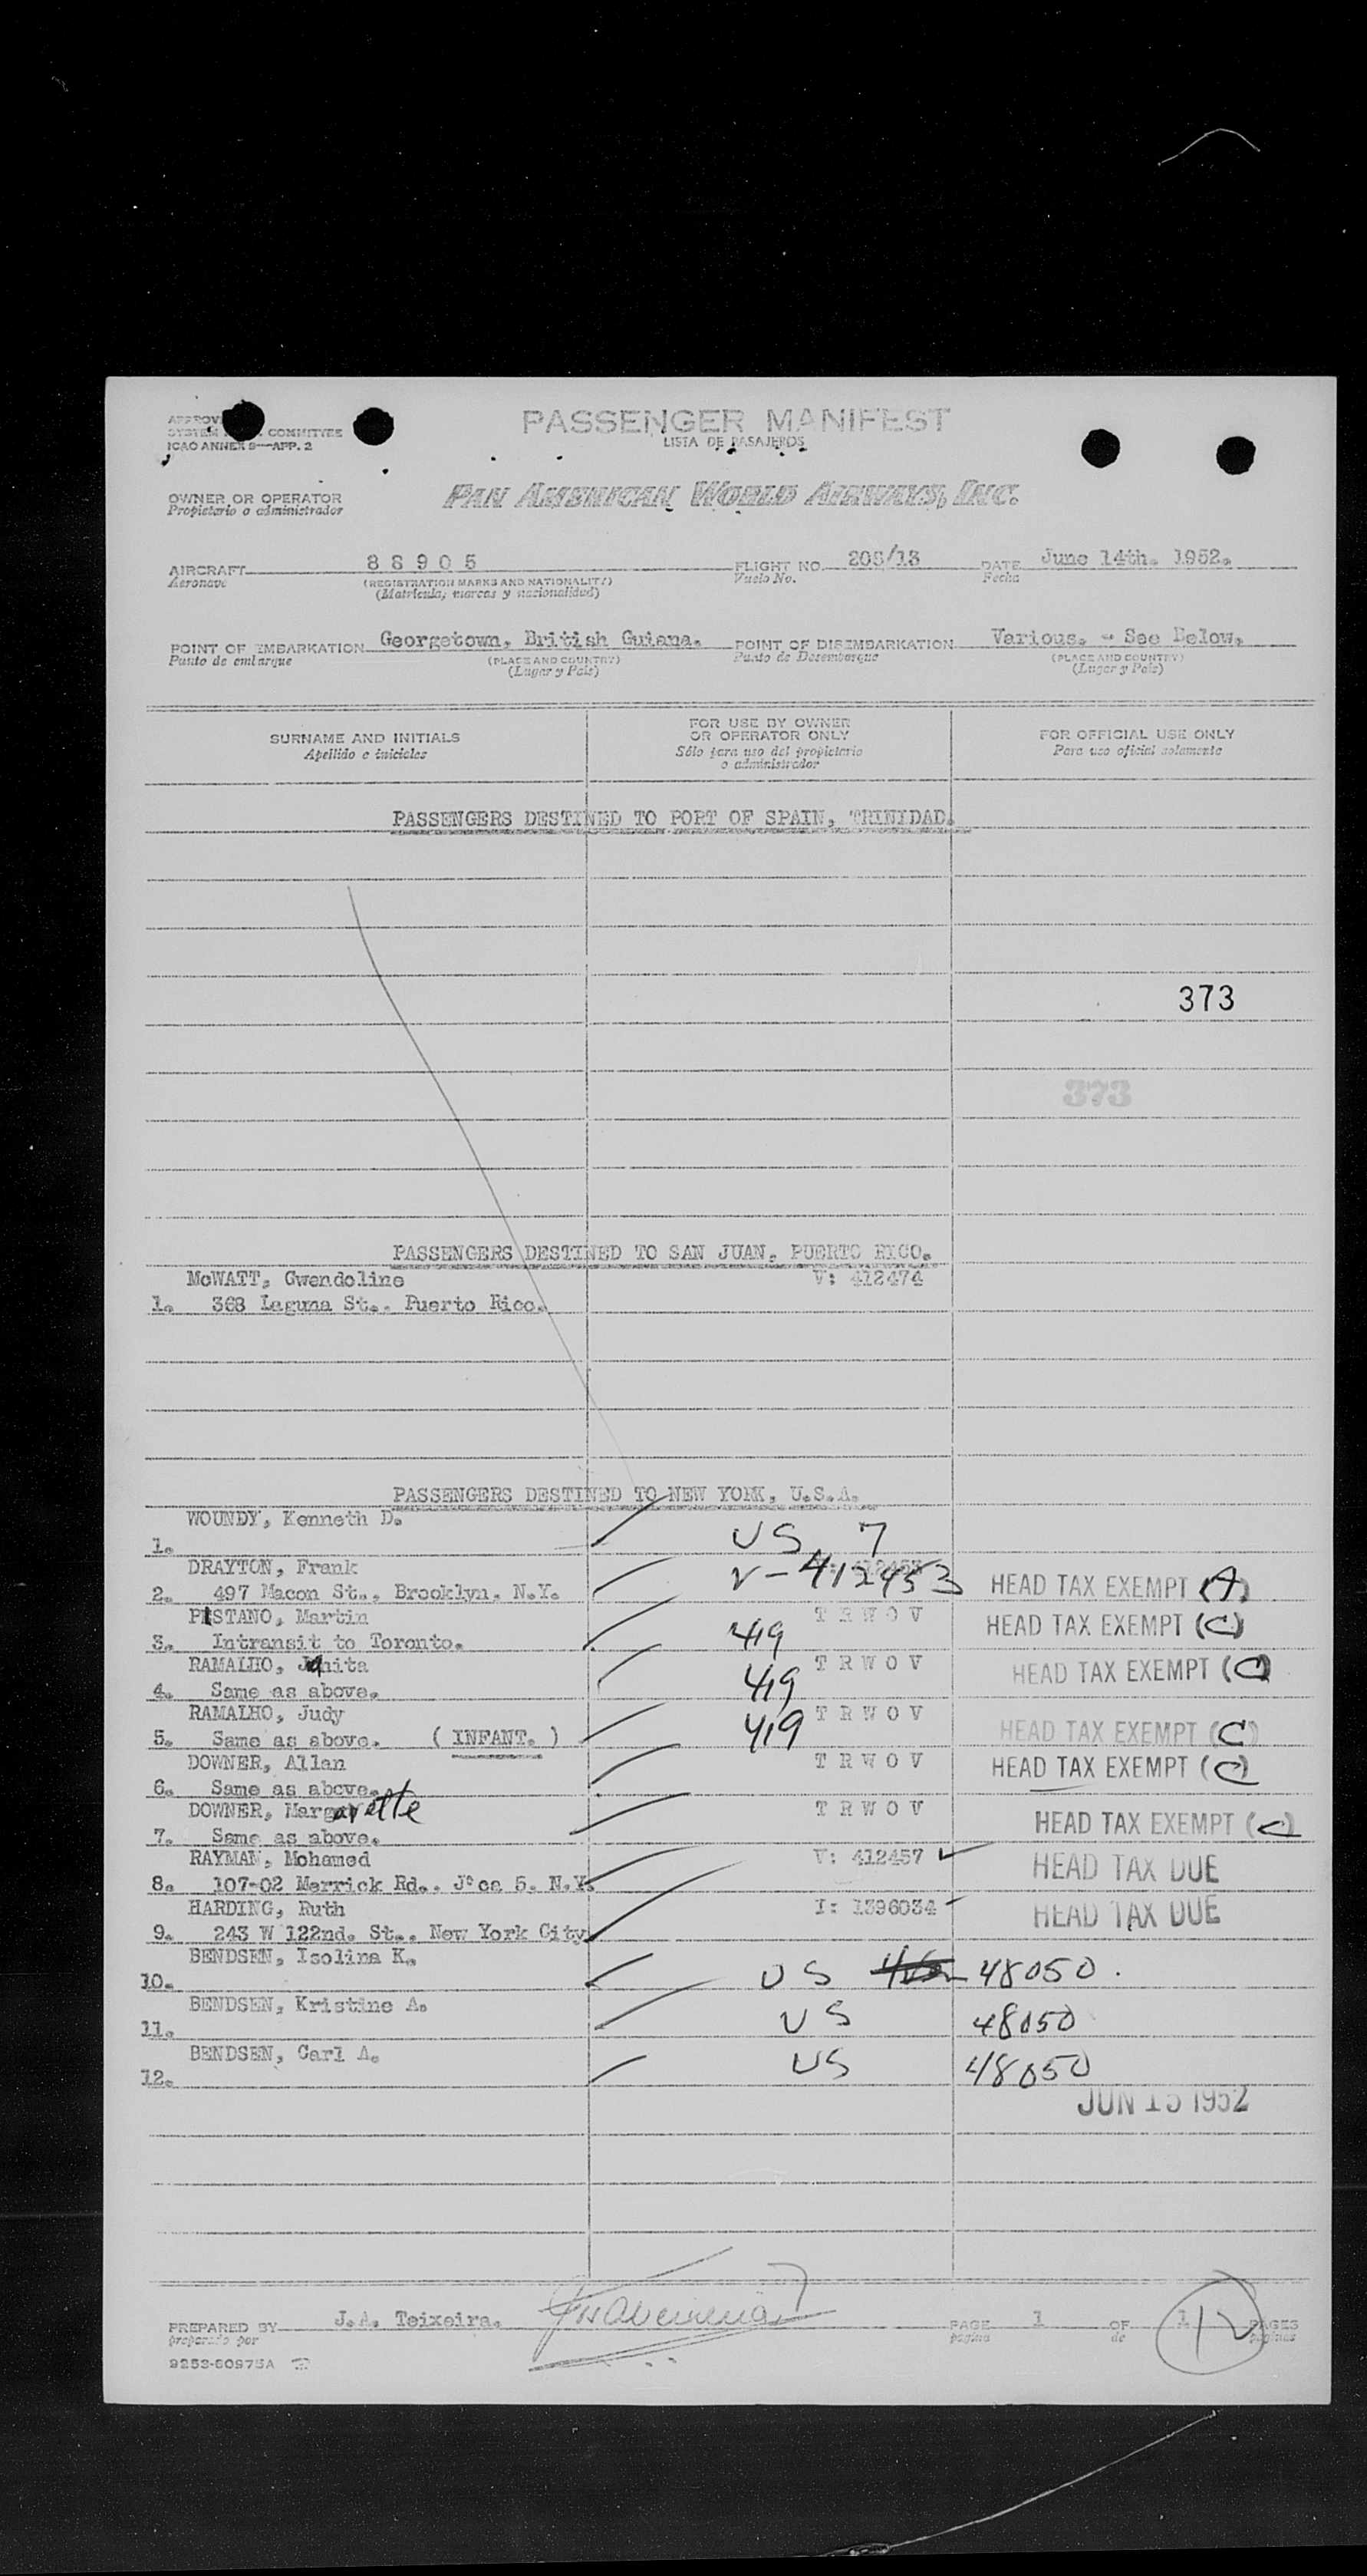 PASSENGER MANIFEST
LISTA DE PASAJEROS
COMMITTEE
ICAO ANNEX 9—APP. 2
OWNER OR OPERATOR
Propietario o administrador
PAN AMERICAN WORLD AIRWAYS, INC.
AIRCRAFT 8 8 9 0 5 FLIGHT NO. 208/13 DATE June 14th. 1952.
Aeronave (REGISTRATION MARKS AND NATIONALITY) Vuelo No. Fecha
(Matrícula, marcas y nacionalidad)
POINT OF EMBARKATION Georgetown, British Guiana. POINT OF DISEMBARKATION Various. - See Below.
Punto de embarque (PLACE AND COUNTRY) Punto de Desembarque (PLACE AND COUNTRY)
(Lugar y País) (Lugar y País)
SURNAME AND INITIALS
Apellido e iniciales
FOR USE BY OWNER
OR OPERATOR ONLY
Sólo para uso del propietario
o administrador
FOR OFFICIAL USE ONLY
Para uso oficial solamente
PASSENGERS DESTINED TO PORT OF SPAIN, TRINIDAD.
373
373
PASSENGERS DESTINED TO SAN JUAN, PUERTO RICO.
McWATT, Gwendoline V: 412474
1. 368 Laguna St., Puerto Rico.
PASSENGERS DESTINED TO NEW YORK, U.S.A.
WOUNDY, Kenneth D.
1. US 7
DRAYTON, Frank V-412453
2. 497 Macon St., Brooklyn. N.Y. HEAD TAX EXEMPT (A)
PISTANO, Martin T R W O V
3. Intransit to Toronto. 419 HEAD TAX EXEMPT (C)
RAMALHO, Janita T R W O V
4. Same as above. 419 HEAD TAX EXEMPT (C)
RAMALHO, Judy T R W O V
5. Same as above. ( INFANT. ) 419 HEAD TAX EXEMPT (C)
DOWNER, Allan T R W O V
6. Same as above. HEAD TAX EXEMPT (C)
DOWNER, Margarette T R W O V
7. Same as above. HEAD TAX EXEMPT (C)
RAYMAN, Mohamed V: 412457
8. 107-02 Merrick Rd.. J'ca 5. N.Y. HEAD TAX DUE
HARDING, Ruth I: 1396034
9. 243 W 122nd. St., New York City HEAD TAX DUE
BENDSEN, Isolina K.
10. US 48050.
BENDSEN, Kristine A.
11. US 48050
BENDSEN, Carl A.
12. US 48050
JUN 15 1952
PREPARED BY J.A. Teixeira. PAGE 1 OF 1 PAGES
preparado por página de páginas
12
9253-60975A